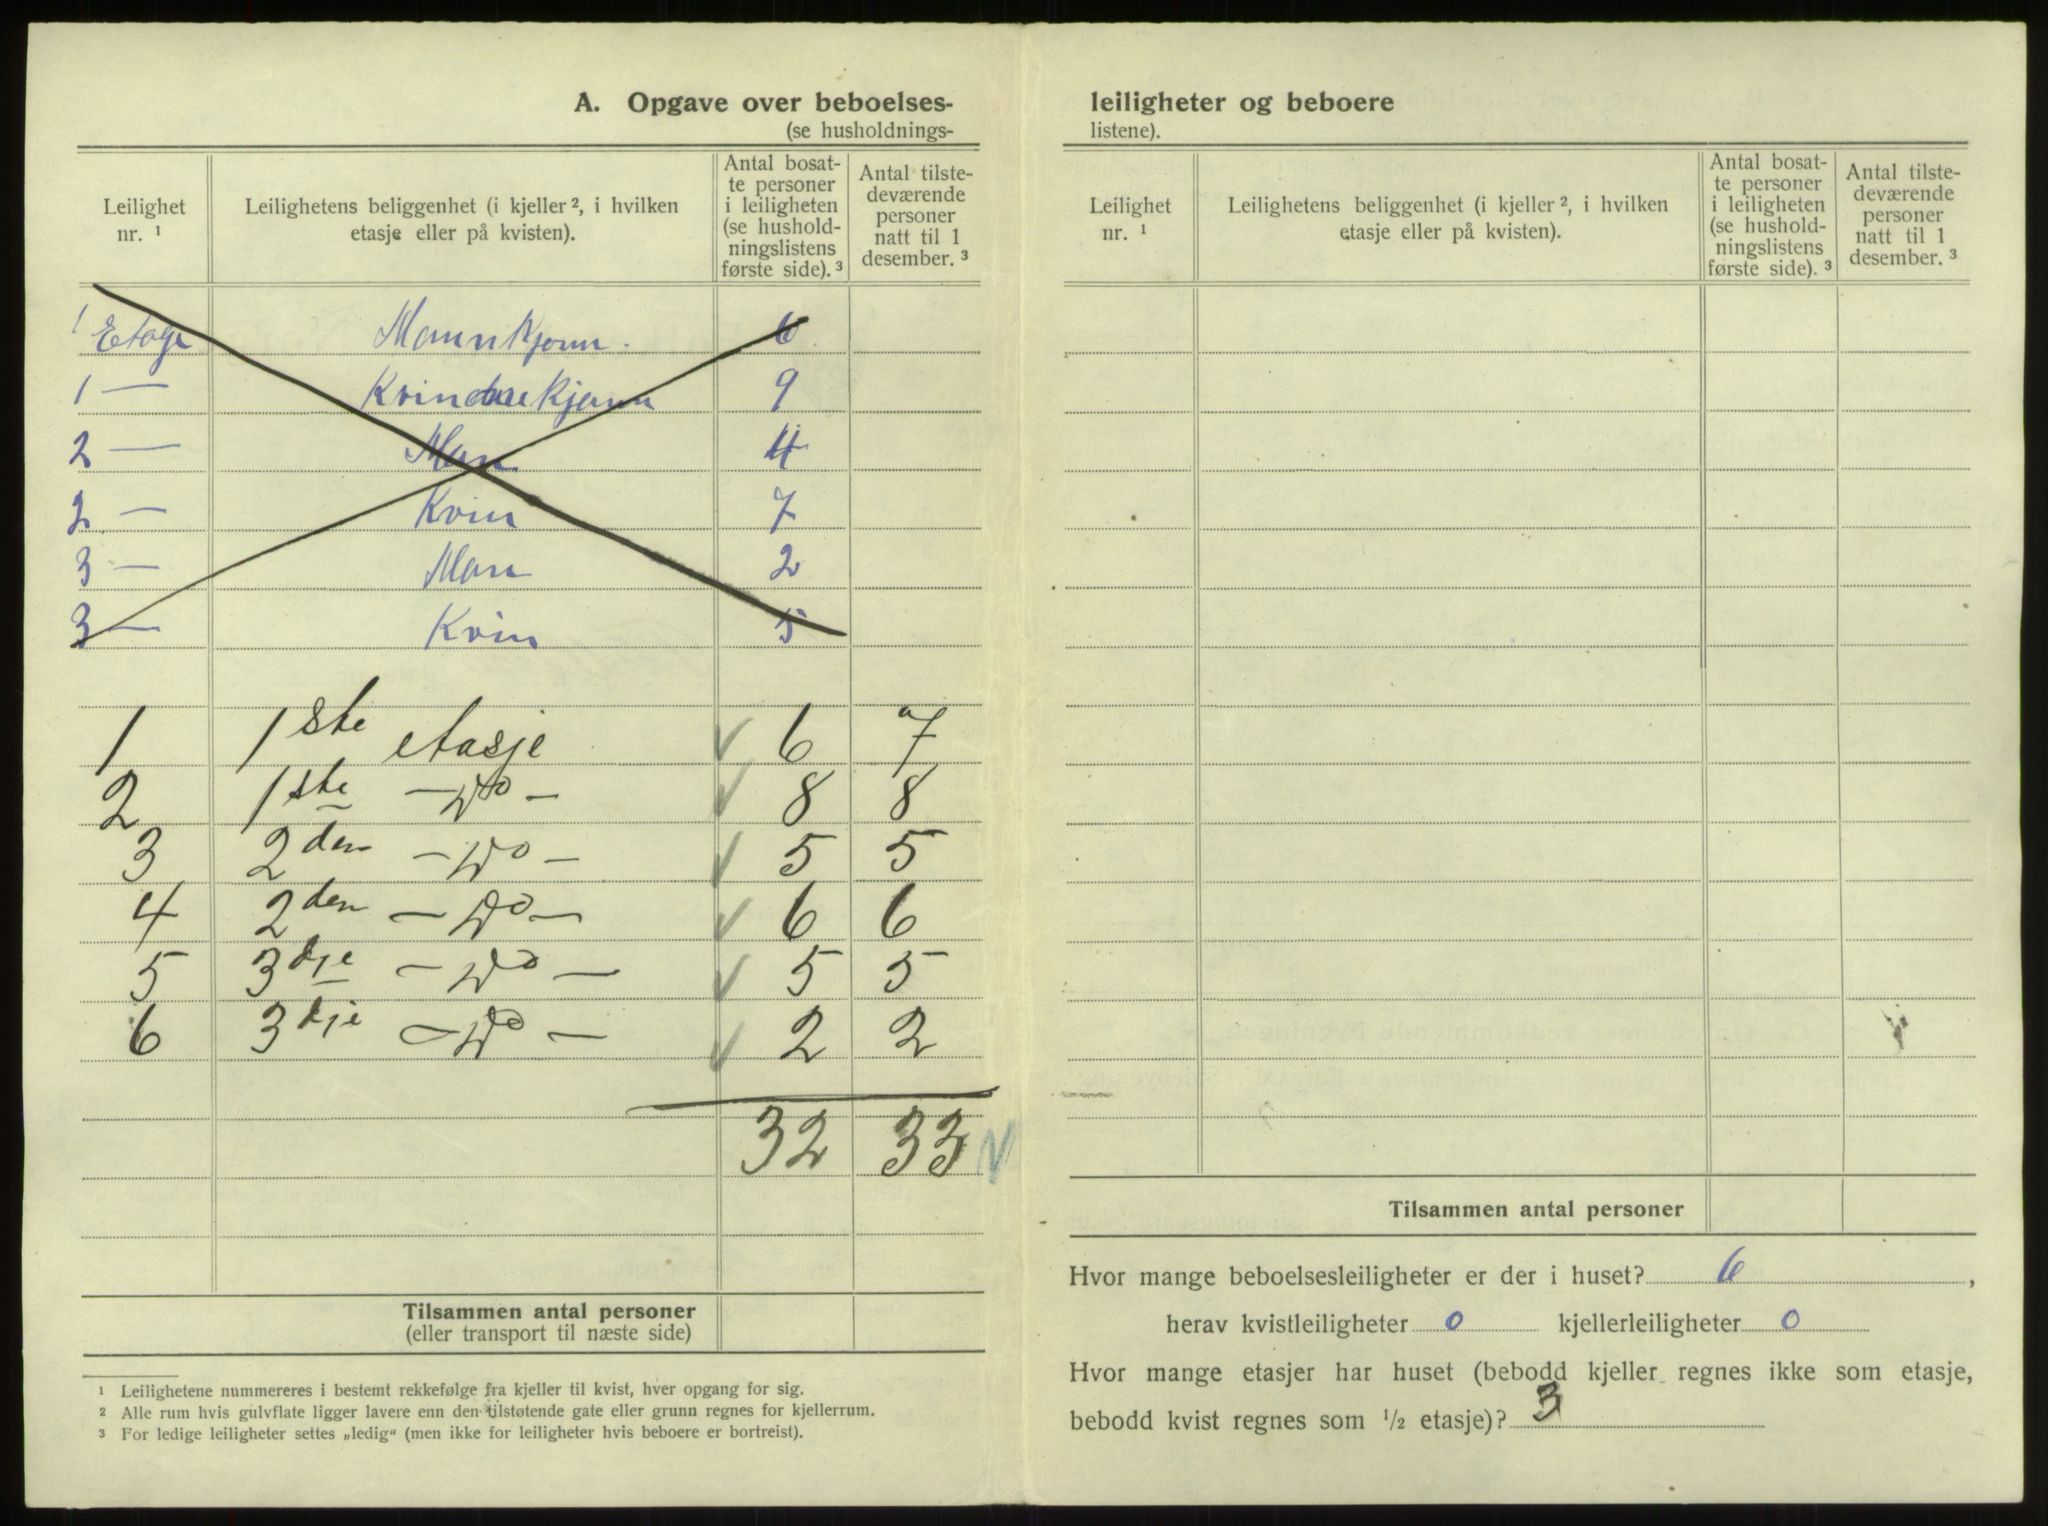 A. Opgave over beboelses-
(se husholdnings-
Leilighet nr. ¹
Leilighetens beliggenhet (i kjeller ², i hvilken etasje eller på kvisten).
Antal bosat-
te personer
i leiligheten
(se hushold-
ningslistens
første side). ³
Antal tilste-
deværende
personer
natt til 1
desember. ³
1 Etage Mannkjønn. 6
1 — Kvindnekjønn 9
2 — Man 4
2 — Kvin 7
3 — Man 2
3 — Kvin 5
1 1ste etasje √ 6 7
2 1ste — Do — √ 8 8
3 2den — Do — √ 5 5
4 2den — Do — √ 6 6
5 3dje — Do — √ 5 5
6 3dje — Do — √ 2 2
32 33 √
Tilsammen antal personer
(eller transport til næste side)
¹ Leilighetene nummereres i bestemt rekkefølge fra kjeller til kvist, hver opgang for sig.
² Alle rum hvis gulvflate ligger lavere enn den tilstøtende gate eller grunn regnes for kjellerrum.
³ For ledige leiligheter settes „ledig“ (men ikke for leiligheter hvis beboere er bortreist).
leiligheter og beboere
listene).
Leilighet nr. ¹
Leilighetens beliggenhet (i kjeller ², i hvilken etasje eller på kvisten).
Antal bosat-
te personer
i leiligheten
(se hushold-
ningslistens
første side). ³
Antal tilste-
deværende
personer
natt til 1
desember. ³
Tilsammen antal personer
Hvor mange beboelsesleiligheter er der i huset? 6,
herav kvistleiligheter 0 kjellerleiligheter 0
Hvor mange etasjer har huset (bebodd kjeller regnes ikke som etasje,
bebodd kvist regnes som ½ etasje)? 3